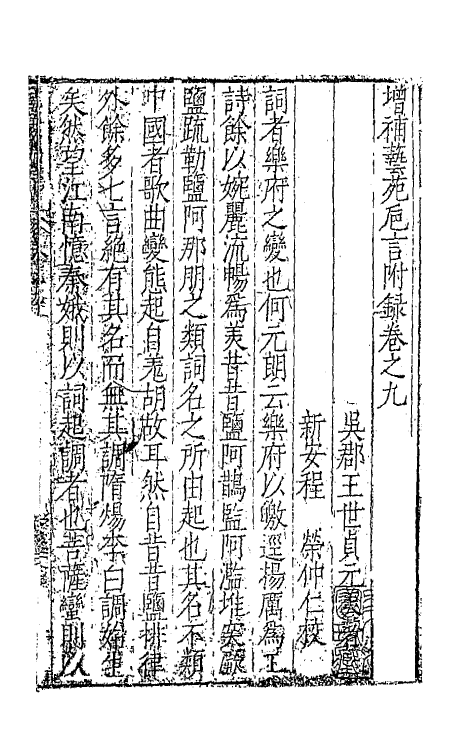 增補藝苑巵言附録卷之九
吳郡王世貞元
新安程　榮仲仁校
詞者樂府之變也何元朗云樂府以皦逕揚厲爲工
詩餘以婉麗流暢爲美昔昔鹽阿鵲監阿濫堆突厥
鹽疏勒鹽阿那朋之類詞名之所由起也其名不類
中國者歌曲變態起自羌胡故耳然自昔昔鹽排律
外餘多七言絶有其名而無其調隋煬李白調始生
矣然望江南憶秦娥則以詞起調者也菩薩蠻則以